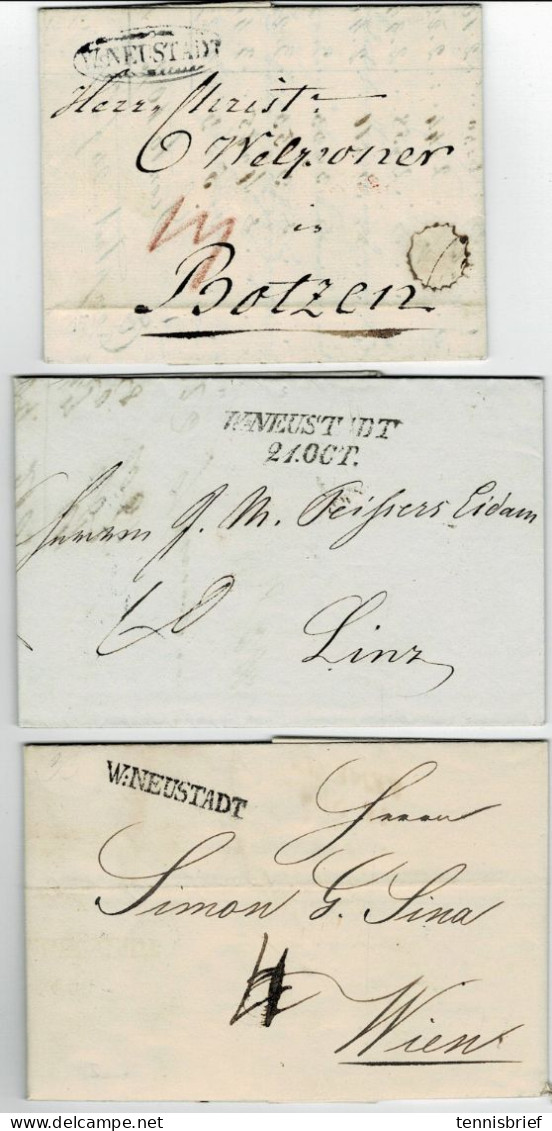 W:NEUSTADT
Herr Christ:
Welponer
in
Botzen
W:NEUSTADT
21.OCT.
Herrn J. M. Eidam
Linz
W:NEUSTADT
Herrn
Simon G. Sina
Wien
tennisbrief